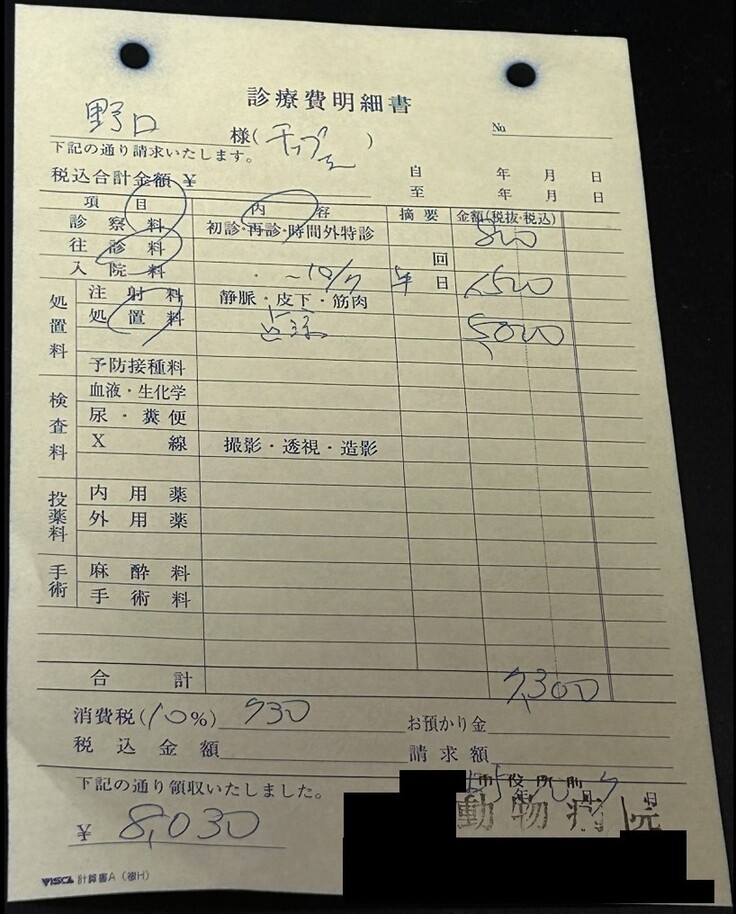 診療費明細書
野口 様( チップ )
No
下記の通り請求いたします。
税込合計金額 ¥
自 年 月 日
至 年 月 日
項目 内容 摘要 金額(税抜・税込)
診察料 初診・再診・時間外特診 800
往診料 回
入院料 ~10/7 日 1500
処置料
注射料 静脈・皮下・筋肉
処置料 点滴 5000
予防接種料
検査料
血液・生化学
尿・糞便
X線 撮影・透視・造影
投薬料
内用薬
外用薬
手術
麻酔料
手術料
合計 7,300
消費税(10%) 730
お預かり金
税込金額
請求額
下記の通り領収いたしました。
市役所前
年 10 月 7 日
動物病院
¥ 8,030
VISCL 計算書A(複H)